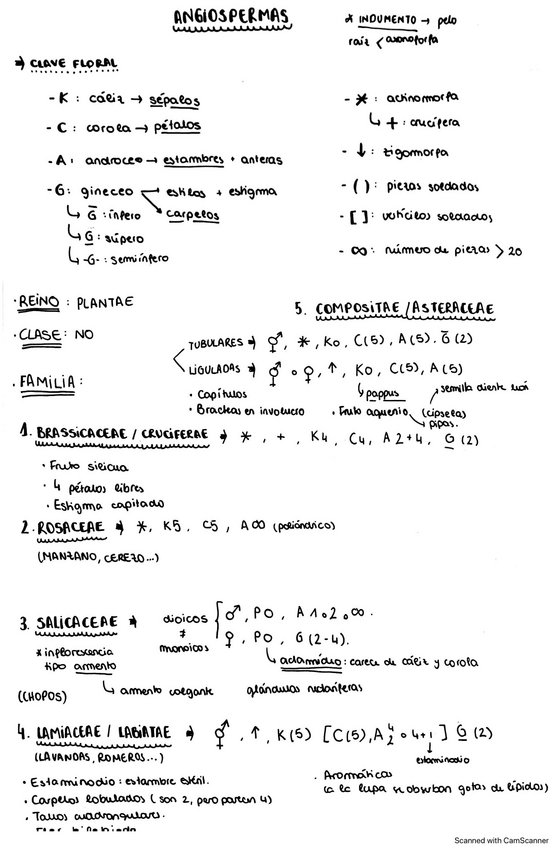 ANGIOSPERMAS
* INDUMENTO → pelo
raíz < axonoforfa
⇒ CLAVE FLORAL
- K : cáliz → sépalos
- C : corola → pétalos
- A : androceo → estambres + anteras
- G : gineceo → estilos + estigma
→ carpelos
↳ G̅ : ínfero
↳ G̲ : súpero
↳ -G- : semiínfero
- * : actinomorfa
↳ + : crucífera
- ↓ : zigomorfa
- ( ) : piezas soldadas
- [ ] : verticilos soldados
- ∞ : número de piezas > 20
· REINO : PLANTAE
· CLASE : NO
· FAMILIA :
5. COMPOSITAE / ASTERACEAE
TUBULARES ⇒ ⚥, *, K0, C(5), A(5), G̅(2)
LIGULADAS ⇒ ⚥ o ♀, ↑, K0, C(5), A(5)
↳ pappus
· Capítulos
· Bracteas en involucro
· Fruto aquenio (cipselas
pipas.
semilla diente león
1. BRASSICACEAE / CRUCIFERAE ⇒ *, +, K4, C4, A2+4, G̲(2)
· Fruto silicua
· 4 pétalos libres
· Estigma capitado
2. ROSACEAE ⇒ *, K5, C5, A∞ (poliándrico)
(MANZANO, CEREZO...)
3. SALICACEAE ⇒ dioicos { ♂, P0, A1o2o∞.
≠
monoicos ♀, P0, G(2-4).
↳ aclamídio : carece de cáliz y corola
* inflorescencia
tipo amento
↳ amento colgante
glándulas nectaríferas
(CHOPOS)
4. LAMIACEAE / LABIATAE ⇒ ⚥, ↑, K(5) [C(5), A 4/2 o 4+1] G̲(2)
↓
estaminodio
(LAVANDAS, ROMEROS...)
· Estaminodio : estambre estéril.
· Carpelos lobulados (son 2, pero parecen 4)
· Tallos cuadrangulares.
· Aromáticas
(a la lupa se observan gotas de lípidos)
Scanned with CamScanner